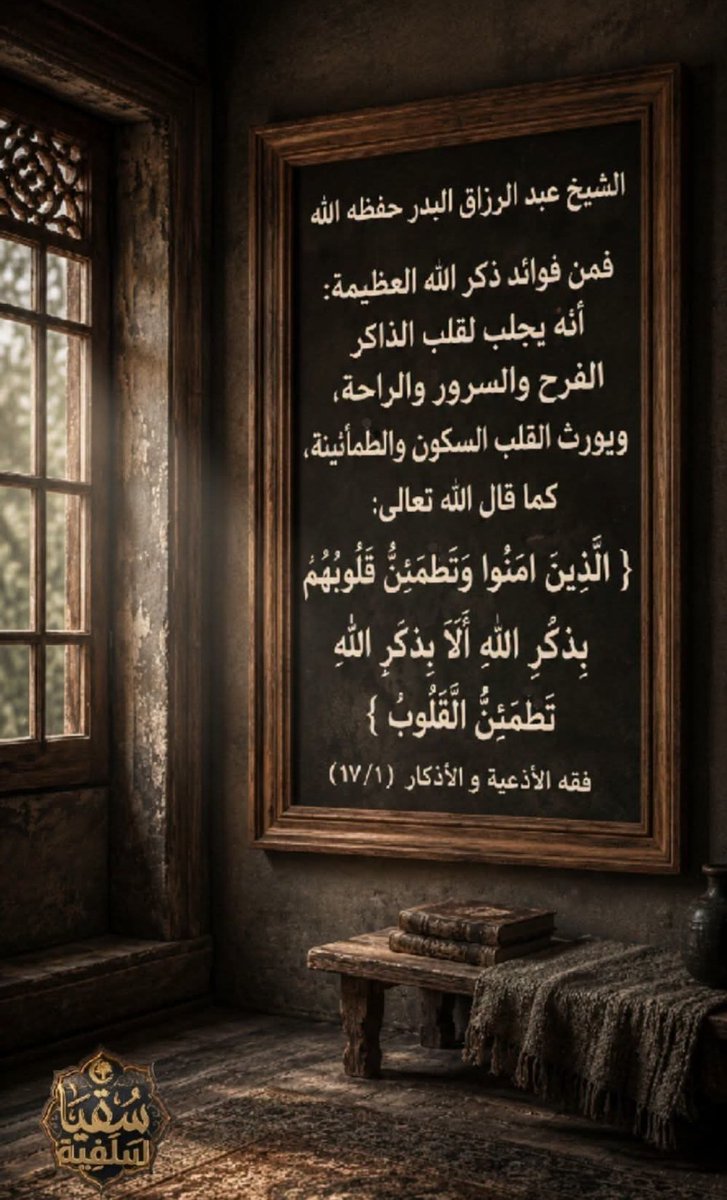 الشيخ عبد الرزاق البدر حفظه الله
فمن فوائد ذكر الله العظيمة:
أنه يجلب لقلب الذاكر
الفرح والسرور والراحة،
ويورث القلب السكون والطمأنينة،
كما قال الله تعالى:
{ الَّذِينَ امَنُوا وَتَطمَئِنُّ قَلُوبُهُمُ
بِذكُرِ اللهِ أَلَا بِذكَرِ اللهِ
تَطمَئِنُّ الَّقَلُوبُ }
فقه الأذعية و الأذكار (١٧/١)
سُقيَا
سَلَفِيَة